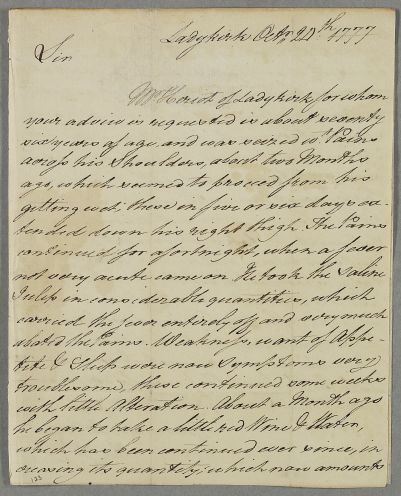 Ladykirk Octr 20th 1777
Sir
Mr Heriot of Ladykirk for whom
your advice is requested is about seventy
six years of age, and was seized wt Pains
across his shoulders, about two Months
ago, which seemed to proceed from his
getting wet, these in five or six days ex-
tended down his right thigh. The Pains
continued for a fortnight, when a fever
not very acute came on. He took the Saline
Julep in considerable quantities, which
carried the fever entirely off and very much
abated the Pains. Weakness, want of Appe-
tite & Sleep were now Symptoms very
troublesome, these continued some weeks
with little Alteration. About a Month ago
he began to take a little red Wine & Water,
which has been continued ever since, in-
creasing its quantity, which now amounts
123